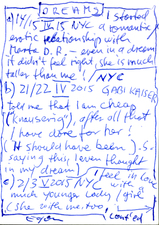 DREAMS
a) 14/15 IV 15 NYC I started
a romantic
erotic relationship with
Marta D. R. - even in a dream
it didn't feel right, she is much
taller than me! / NYC
b) 21/22 IV 2015 GABI KAISER
told me that I am cheap
("knauserig"), after all that
I have done for her!
(It should have been). S.o.
saying this, I even thought
in my dream) I feel in love
c) 2/3 V 2015 NYC with
much younger lady/girl
(she with me, too,
cont'ed